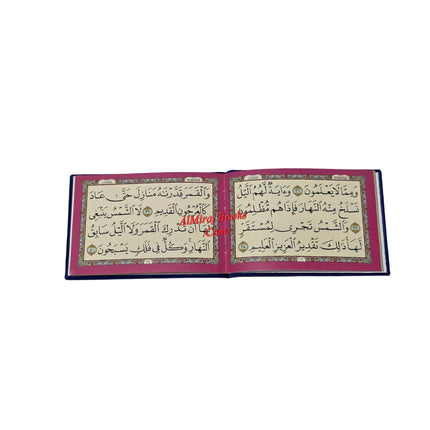 وَمِمَّا لَا يَعْلَمُونَ ﴿٣٦﴾ وَءَايَةٌ لَّهُمُ الَّيْلُ
نَسْلَخُ مِنْهُ النَّهَارَ فَإِذَاهُم مُّظْلِمُونَ
﴿٣٧﴾ وَالشَّمْسُ تَجْرِي لِمُسْتَقَرٍّ
لَّهَا ذَٰلِكَ تَقْدِيرُ الْعَزِيزِ الْعَلِيمِ ﴿٣٨﴾
وَالْقَمَرَ قَدَّرْنَٰهُ مَنَازِلَ حَتَّىٰ عَادَ
كَالْعُرْجُونِ الْقَدِيمِ ﴿٣٩﴾ لَا الشَّمْسُ يَنۢبَغِي
لَهَا أَن تُدْرِكَ الْقَمَرَ وَلَا الَّيْلُ سَابِقُ
النَّهَارِ وَكُلٌّ فِي فَلَكٍ يَسْبَحُونَ ﴿٤٠﴾
AlMiraj Books
.Com